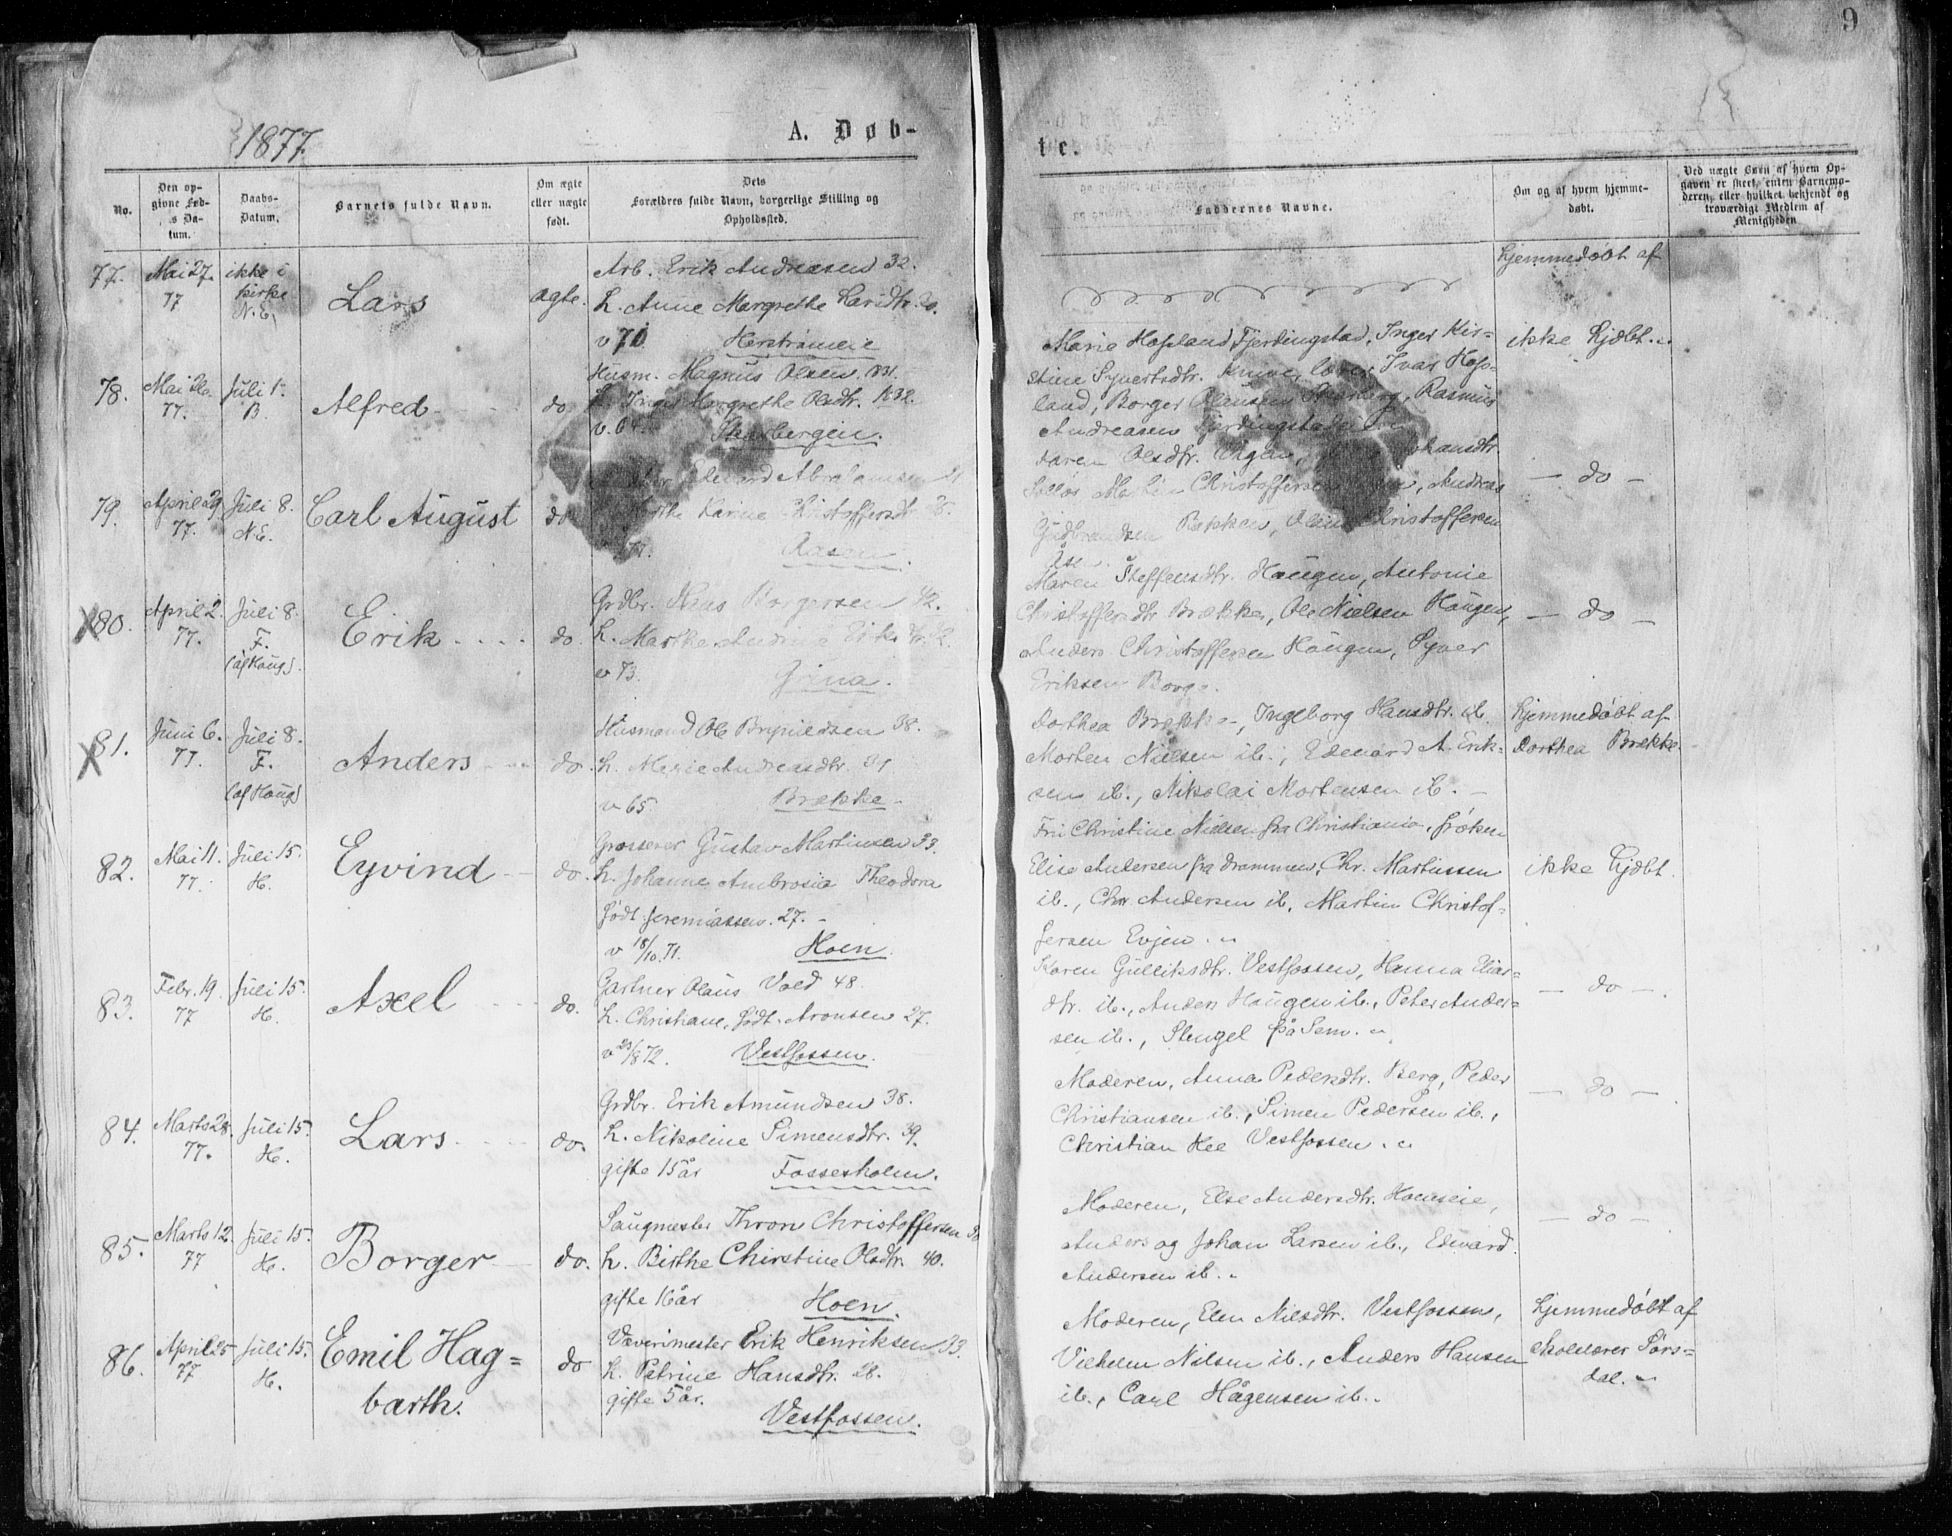 9
1877.
A. Døb-
te.
No.
Den op-
givne Fød-
s Da-
tum.
Daabs-
Datum.
Barnets fulde Navn.
Om ægte
eller uægte
født.
Dets
Forældres fulde Navn, borgerlige Stilling og
Opholdssted.
Faddernes Navne.
Om og af hvem hjemme-
døbt.
Ved uægte Børn af hvem Op-
gaven er skeet, enten Barnemo-
deren, eller hvilket bekjendt og
troværdigt Medlem af
Menigheden
77.
Mai 27.
77
ikke i
Kirke
N. E.
Lars
ægte.
Arb. Erik Andreasen 32.
h. Anne Margrethe
v 70
Hjemmedøbt af
78.
Mai
77.
Juli 1.
B.
Alfred
do
Husm. Magnus Olsen
h. Inger Margrethe Olsdtr.
v. 64.
Marie Hofland Fjerdingstad, Inger Kir-
stine Syvertsdtr. Ivar Hof-
land, Borger Rasmus
Andreasen
ikke hjdbt.
79.
April 29
77.
Juli 8.
N. E.
Carl August
do
Edevard Abrahamsen
Karine Christoffersdtr.
77.
Aasen
Karen Olsdtr. Johansdtr.
Martin Christoffersen Andreas
Gudbrandsen Bækken, Christoffersen
Åsen.
— do —
80.
April 2.
77.
Juli 8.
F.
(af Haug).
Erik
do.
Grdbr. Hans Borgersen 42.
h. Marthe
v 73.
Maren Steffensdtr. Haugen, Antonie
Christoffersdtr Brække, Ole Nielsen Haugen,
Anders Christoffersen Haugen, Syver
Eriksen
— do —
81.
Juni 6.
77.
Juli 8.
F.
(af Haug)
Anders
do.
Husmand Ole Brynildsen 38.
h. Marie Andreasdtr. 31
v 65.
Brække
Dorthea Brække, Ingeborg Hansdtr. ib.
Morten Nielsen ib., Edevard A. Erik-
sen ib., Nikolai Mortensen ib. —
Hjemmedøbt af
Dorthea Brække.
82.
Mai 11.
77.
Juli 15.
H.
Eyvind
do.
Grosserer Gustav Martinsen 33.
h. Johanne Ambrosia Theodora
født Jeremiassen. 27. –
v 18/10. 71.
Hoen.
Fru Christine Nielsen fra Christiania, frøken
Elise Andersen fra Drammen, Chr. Martinsen
ib., Chr. Andersen ib. Martin Christof-
fersen Evjen.
ikke hjdbt.
83.
Febr. 19
77
Juli 15.
H.
Axel
do.
Gartner Olaus Vold 48.
h. Christiane, født Aronsen 27.
v 23/8 72.
Vestfossen.
Karen Gulliksdtr. Vestfossen, Hanna Elias-
dtr. ib., Anders Haugen ib., Peter Ander-
sen ib., Stengel på Sem.
— do —.
84.
Marts 28.
77.
Juli 15.
H.
Lars
do.
Grdbr. Erik Amundsen 38.
h. Nikoline Simensdtr. 39.
gifte 15 år
Fossesholm.
Moderen, Anna Pedersdtr. Berg, Peder
Christiansen ib., Simen Pedersen ib.,
Christian Hee Vestfossen.
— do —.
85.
Marts 12.
77
Juli 15.
H.
Borger
do.
Saugmester Thron Christoffersen
h. Birthe Chirstine Olsdtr. 40.
gifte 16 år
Hoen.
Moderen, Else Andersdtr. Hoenseie,
Anders og Johan Larsen ib., Edward
Andersen ib.
— do —
86.
April 25
77
Juli 15.
H.
Emil Hag=
barth.
do
Væverimester Erik Henriksen 33.
h. Petrine Hansdtr. 28.
gifte 5 år.
Vestfossen.
Moderen, Elen Nilsdtr. Vestfossen,
Vilhelm Nilsen ib., Anders Hansen
ib., Carl Hågensen ib.
Hjemmedøbt af
Skolelærer Sørs=
dal.